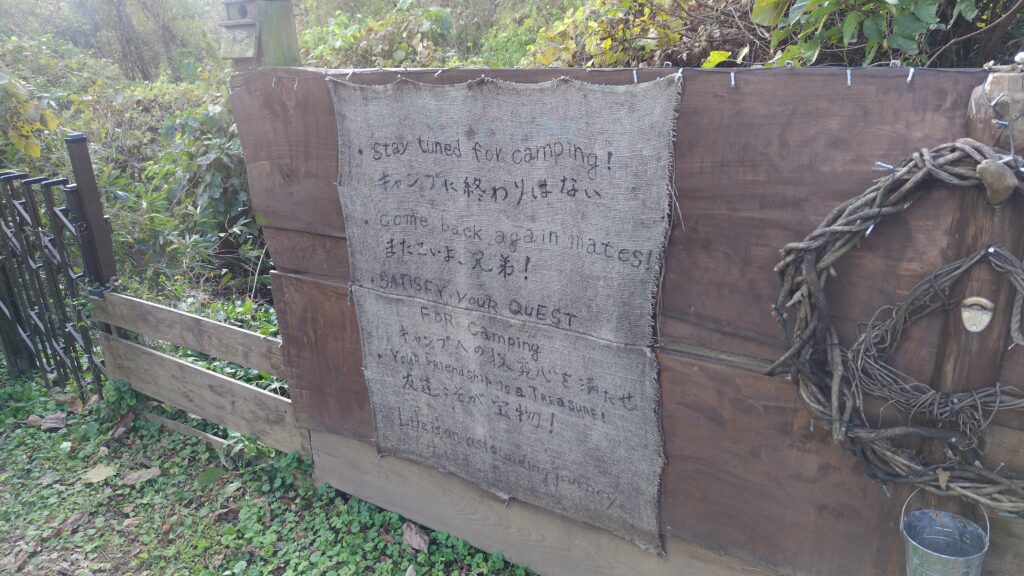 • Stay tuned for camping!
キャンプに終わりはない
• Come back again mates!
またこいよ、兄弟!
• SATISFY YOUR QUEST
FOR Camping
キャンプへの探究心を満たせ
• Your Friendship is a TREASURE!
友達こそが宝物!
Life is an astounding journey